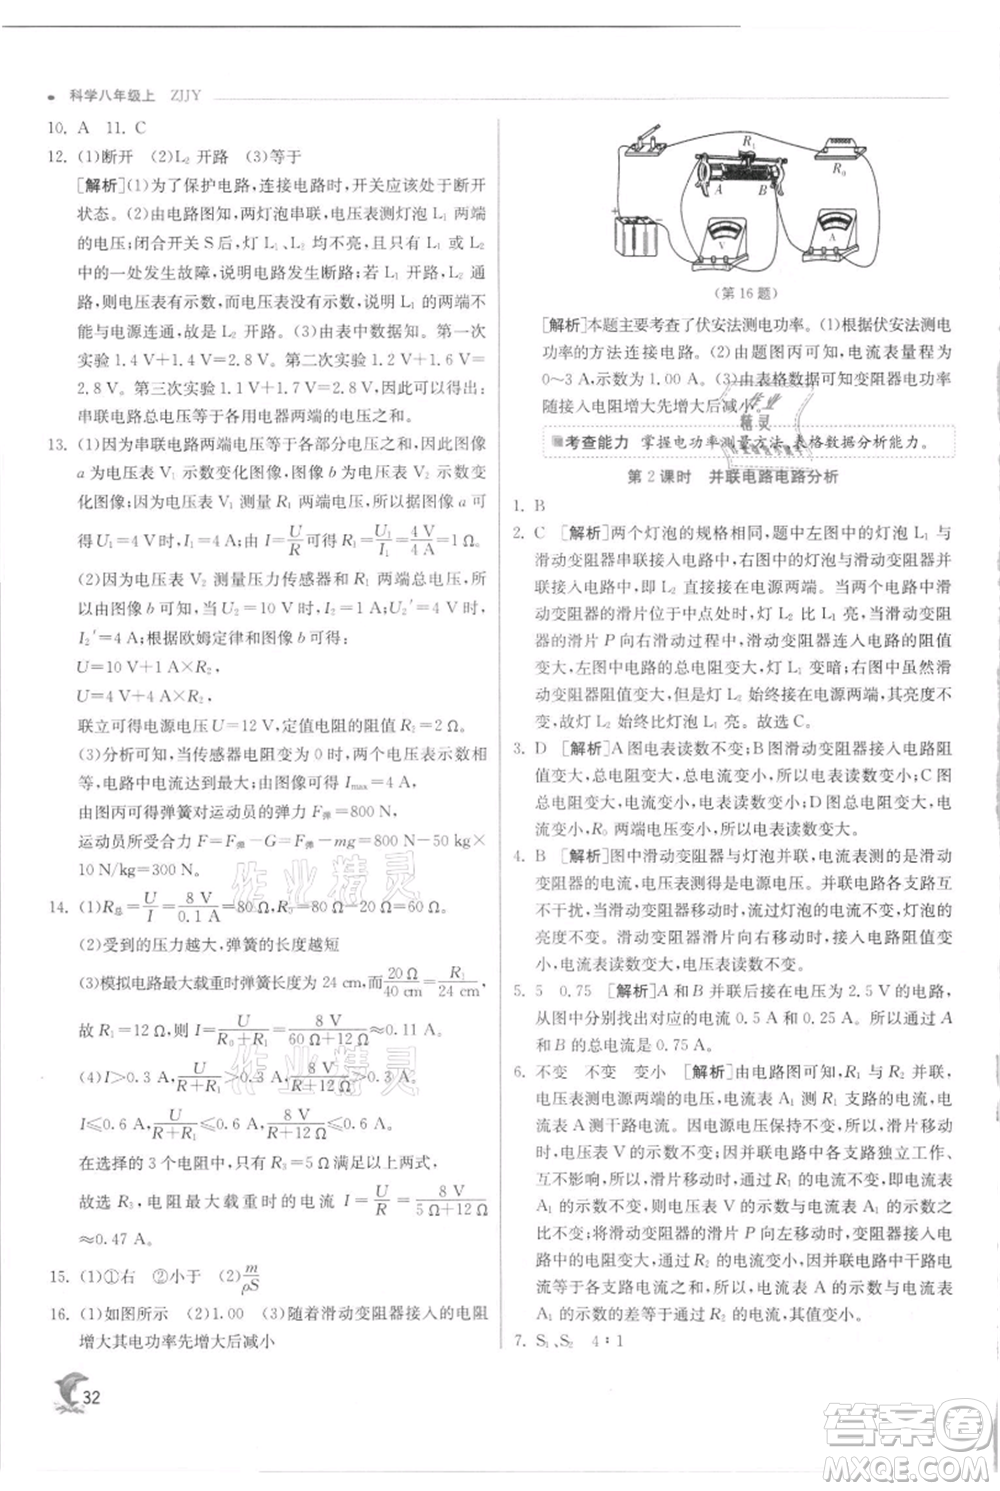 科学八年级上 ZJJY
10. A 11. C
12. (1)断开 (2)L₂ 开路 (3)等于
[解析](1)为了保护电路,连接电路时,开关应该处于断开
状态。(2)由电路图知,两灯泡串联,电压表测灯泡 L₂ 两端
的电压;闭合开关 S后,灯 L₁、L₂ 均不亮,且只有 L₁ 或 L₂
中的一处发生故障,说明电路发生断路;若 L₁ 开路,L₂ 通
路,则电压表没有示数;有示数,说明电压表的两端不
能与电源连通,故是 L₂ 开路。(3)由表中数据知。第一次
实验 1.4 V+1.4 V=2.8 V。第二次实验 1.2 V+1.6 V=
2.8 V。第三次实验 1.8 V+1 V=2.8 V。可得出结论:
串联电路总电压等于各用电器两端的电压之和。
13. (1)因为串联电路两端电压等于各部分电压之和,因此图像
a 为电压表 V₁ 示数变化图像,图像 b 为电压表 V₂ 示数变
化图像。因为电压表 V₁ 测量 R₁ 两端电压,由图像 a 可
得 U₁=4 V 时,I₁=4 A,由 I=U/R可得 R₁=U₁/I₁=4 V/4 A=1 Ω。
(2)因为电压表 V₂ 测量压力传感器和 R₁ 两端总电压,所
以由图像 b 可得 U₂=10 V 时,I₂=1 A,U₂′=4 V 时,
I₂′=4 A;根据欧姆定律和图像 b 可得:
U=10 V+1 A×R₂,
U=4 V+4 A×R₂,
联立可得电源电压 U=12 V,定值电阻的阻值 R₂=2 Ω。
(3)分析可知,当传感器电阻变为 0 时,两个电压表示数相
等,电路中电流达到最大;由图像可得 Imax=4 A,
由图丙可得弹簧对运动员的弹力 F弹=800 N,
运动员所受合力 F=F弹-G=F弹-mg=800 N-50 kg×
10 N/kg=300 N。
14. (1)R总=U/I=8 V/0.1 A=80 Ω,R₀=80 Ω-20 Ω=60 Ω
(2)受到的压力越大,弹簧的长度越短
(3)模拟电路最大载重时弹簧长度为 24 cm,而20 Ω/40 cm=R₁/24 cm,
故 R₁=12 Ω,则 I=U/(R₀+R₁)=8 V/(60 Ω+12 Ω)≈0.11 A。
I≤0.6 A,U/(R+R₁)≤0.6 A,8 V/(R+12 Ω)≤0.6 A,
在选择的 3 个电阻中,只有 R₃=5 Ω 满足以上两式,
故选 R₃,电阻最大载重时的电流 I=U/R=8 V/(5 Ω+12 Ω)
≈0.47 A。
15. (1)①右 ②小于 (2)m/ρS
16. (1)如图所示 (2)1.00 (3)随着滑动变阻器接入的电阻
增大其电功率先增大后减小
32
R₁
R₀
A B
V
A
(第 16 题)
[解析]本题主要考查了伏安法测电功率。(1)根据伏安法测电
功率的方法连接电路。(2)由题图丙可知,电流表量程为
0~3 A,示数为 1.00 A。(3)由表格数据可知变阻器电功率
随接入电阻增大先增大后减小。
考查能力 掌握电功率测量方法,表格数据分析能力。
第 2 课时 并联电路电路分析
1. B
2. C [解析]两个灯泡的规格相同,题中左图中的灯泡 L₁ 与
滑动变阻器串联接入电路中,右图中的灯泡与滑动变阻器并
联接入电路中,即 L₂ 直接接在电源两端。当两图中的滑动
变阻器的滑片位于中点处时,灯 L₂ 比 L₁ 亮,当滑动变阻
器的滑片 P 向右滑动过程中,滑动变阻器连入电路的阻值
变大,左图中电路的总电阻变大,灯 L₁ 变暗;右图中虽然滑动
变阻器阻值变大,但是灯 L₂ 始终接在电源两端,其亮度不
变,故灯 L₂ 始终比灯 L₁ 亮。故选 C。
3. D [解析]A图电表读数不变;B图滑动变阻器接入电路阻
值变大,总电阻变大,总电流变小,所以电表读数变小;C图
总电阻变小,总电流变大,所以电表读数变大;D图总电阻变
小,总电流变大,R₀ 两端电压变大,所以电表读数变大。
4. B [解析]图中滑动变阻器与灯泡并联,电流表测的是滑动
变阻器的电流,电压表测的是电源电压。并联电路各支路互
不干扰,当滑动变阻器移动时,流过灯泡的电流不变,灯泡的
亮度不变。当滑动变阻器滑片向右移动时,接入电路阻值变
小,电流变大,故电流表读数变大,电压表读数不变。
5. 5 0.75 [解析]A 和 B 并联后接在电压为 2.5 V 的电路,
从图中分别找出对应的电流 0.5 A 和 0.25 A。所以流过 A
和 B 的总电流是 0.75 A。
6. 不变 不变 变小 [解析]由电路图可知,两电阻并联,电
压表测电源两端的电压,电流表 A₁ 测 R₁ 支路的电流,电流
表 A 测干路电流。因为电源电压保持不变,所以滑片移动
时,电压表 V 的示数不变;因为并联电路中各支路独立工作、
互不影响,所以滑片移动时,通过 R₁ 的电流不变,即电流表
A₁ 的示数不变,所以电压表 V 的示数与电流表 A₁ 的示数之
比不变;将滑动变阻器的滑片 P 向左移动时,变阻器接入电
路中的电阻变大,通过的电流变小,因并联电路中干路电流
等于各支路电流之和,所以电流表 A 的示数变小,电流表 A
与 A₁ 的示数的差等于通过变阻器的电流,则其变小。
7. S₁、S₂ 4∶1
作业精灵
答案圈
MXQE.COM